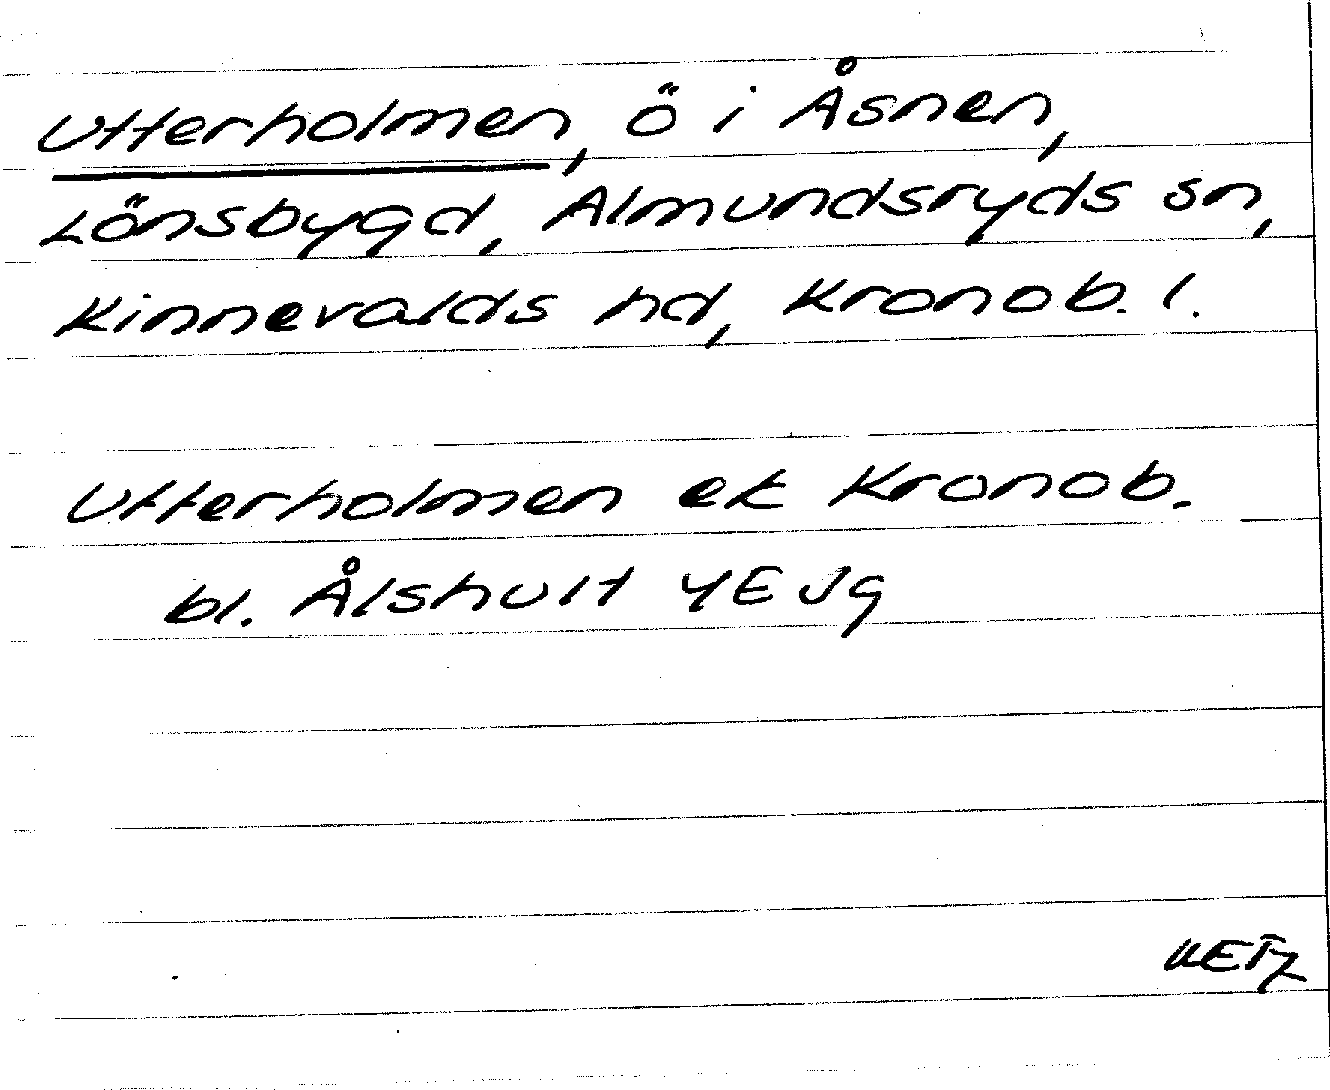 Utterholmen, ö i Åsnen,
Lönsbygd, Almundsryds sn,
Kinnevalds hd, Kronob. l.
Utterholmen ek Kronob.
bl. Ålshult 4E Jg